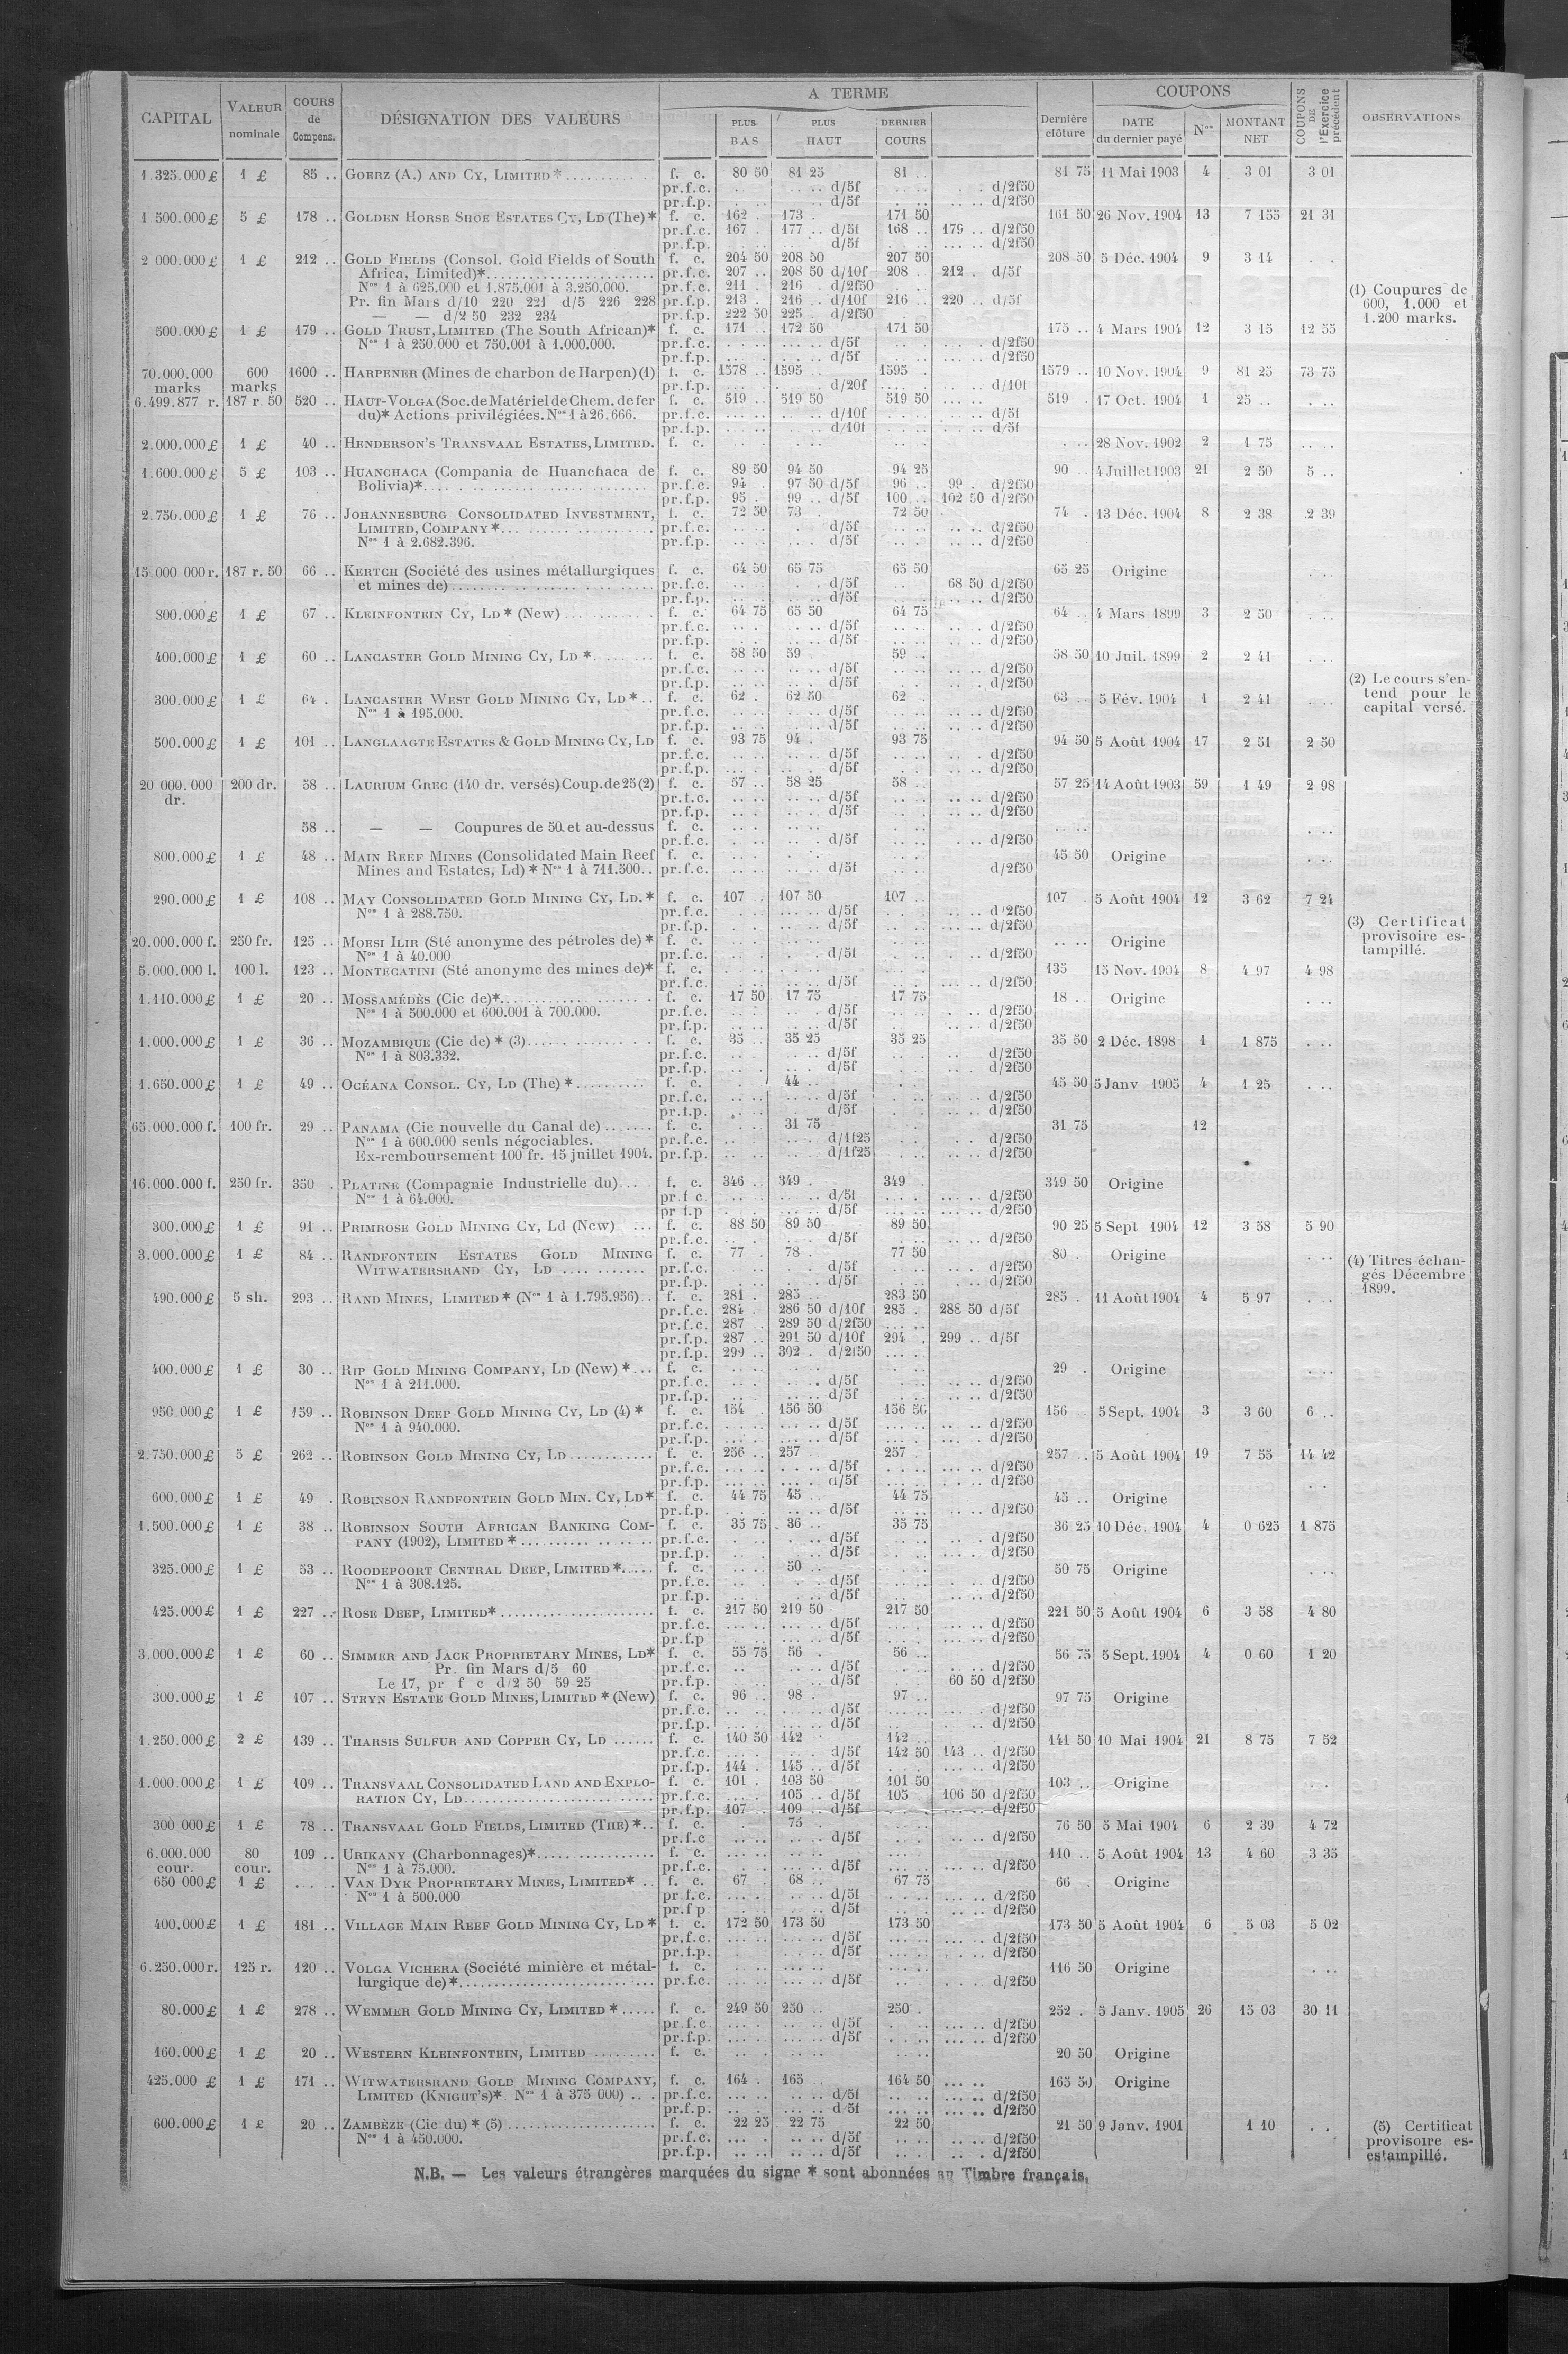 CAPITAL VALEUR nominale COURS de Compens. DÉSIGNATION DES VALEURS A TERME PLUS BAS PLUS HAUT DERNIER COURS Dernière clôture COUPONS DATE du dernier payé Nos MONTANT NET COUPONS DE l'Exercice précédent OBSERVATIONS
1.325.000 £ 1 £ 85 .. GOERZ (A.) AND CY, LIMITED * f. c. 80 50 81 25 81 .. 81 75 11 Mai 1903 4 3 01 3 01
pr.f.c. d/5f d/2f50
pr.f.p. d/5f d/2f50
1 500.000 £ 5 £ 178 .. GOLDEN HORSE SHOE ESTATES CY, LD (The) * f. c. 162 . 173 . 171 50 161 50 26 Nov. 1904 13 7 155 21 31
pr.f.c. 167 . 177 .. d/5f 168 .. 179 .. d/2f50
pr.f.p. d/5f d/2f50
2 000.000 £ 1 £ 212 .. GOLD FIELDS (Consol. Gold Fields of South f. c. 204 50 208 50 207 50 208 50 5 Déc. 1904 9 3 14
Africa, Limited)* pr.f.c. 207 .. 208 50 d/10f 208 .. 212 . d/5f
Nos 1 à 625.000 et 1.875.001 à 3.250.000. pr.f.c. 211 . 216 . d/2f50 (1) Coupures de
Pr. fin Mars d/10 220 221 d/5 226 228 pr.f.p. 213 . 216 .. d/10f 216 .. 220 .. d/5f 600, 1.000 et
— — d/2 50 232 234 pr.f.p. 222 50 225 . d/2f50 1.200 marks.
500.000 £ 1 £ 179 .. GOLD TRUST, LIMITED (The South African)* f. c. 171 .. 172 50 171 50 175 .. 4 Mars 1904 12 3 15 12 55
Nos 1 à 250.000 et 750.001 à 1.000.000. pr.f.c. d/5f d/2f50
pr.f.p. d/5f d/2f50
70.000.000 600 1600 .. HARPENER (Mines de charbon de Harpen) (1) f. c. 1578 .. 1595 .. 1595 . 1579 .. 10 Nov. 1904 9 81 25 73 75
marks marks pr.f.p. d/20f d/10f
6.499.877 r. 187 r. 50 520 .. HAUT-VOLGA (Soc. de Matériel de Chem. de fer f. c. 519 .. 519 50 519 50 519 . 17 Oct. 1904 1 25 ..
du)* Actions privilégiées. Nos 1 à 26.666. pr.f.c. d/10f d/5f
pr.f.p. d/10f d/5f
2.000.000 £ 1 £ 40 .. HENDERSON'S TRANSVAAL ESTATES, LIMITED. f. c. 28 Nov. 1902 2 1 75
1.600.000 £ 5 £ 103 .. HUANCHACA (Compania de Huanchaca de f. c. 89 50 94 50 94 25 90 .. 4 Juillet 1903 21 2 50 5 ..
Bolivia)* pr.f.c. 94 . 97 50 d/5f 96 .. 99 . d/2f50
pr.f.p. 95 . 99 .. d/5f 100 .. 102 50 d/2f50
2.750.000 £ 1 £ 76 .. JOHANNESBURG CONSOLIDATED INVESTMENT, f. c. 72 50 73 . 72 50 74 . 13 Déc. 1904 8 2 38 2 39
LIMITED, COMPANY * pr.f.c. d/5f d/2f50
Nos 1 à 2.682.396. pr.f.p. d/5f d/2f50
15.000 000 r. 187 r. 50 66 .. KERTCH (Société des usines métallurgiques f. c. 64 50 65 75 65 50 65 25 Origine
et mines de) pr.f.c. d/5f 68 50 d/2f50
pr.f.p. d/5f d/2f50
800.000 £ 1 £ 67 .. KLEINFONTEIN CY, LD * (New) f. c. 64 75 65 50 64 75 64 .. 4 Mars 1899 3 2 50
pr.f.c. d/5f d/2f50
pr.f.p. d/5f d/2f50
400.000 £ 1 £ 60 .. LANCASTER GOLD MINING CY, LD * f. c. 58 50 59 . 59 . 58 50 10 Juil. 1899 2 2 41
pr.f.c. d/5f d/2f50
pr.f.p. d/5f d/2f50 (2) Le cours s'en-
300.000 £ 1 £ 64 . LANCASTER WEST GOLD MINING CY, LD * f. c. 62 . 62 50 62 . 63 .. 5 Fév. 1904 1 2 41 tend pour le
Nos 1 à 195.000. pr.f.c. d/5f d/2f50 capital versé.
pr.f.p. d/5f d/2f50
500.000 £ 1 £ 101 .. LANGLAAGTE ESTATES & GOLD MINING CY, LD f. c. 93 75 94 . 93 75 94 50 5 Août 1904 17 2 51 2 50
pr.f.c. d/5f d/2f50
pr.f.p. d/5f d/2f50
20 000.000 200 dr. 58 .. LAURIUM GREC (140 dr. versés) Coup. de 25 (2) f. c. 57 .. 58 25 58 .. 57 25 14 Août 1903 59 1 49 2 98
dr. pr.f.c. d/5f d/2f50
pr.f.p. d/5f d/2f50
58 .. — — Coupures de 50 et au-dessus f. c.
pr.f.c. d/5f d/2f50
800.000 £ 1 £ 48 .. MAIN REEF MINES (Consolidated Main Reef f. c. 45 50 Origine
Mines and Estates, Ld) * Nos 1 à 711.500.. pr.f.c. d/5f d/2f50
290.000 £ 1 £ 108 .. MAY CONSOLIDATED GOLD MINING CY, LD. * f. c. 107 .. 107 50 107 .. 107 . 5 Août 1904 12 3 62 7 24
Nos 1 à 288.750. pr.f.c. d/5f d/2f50
pr.f.p. d/5f d/2f50 (3) Certificat
20.000.000 f. 250 fr. 125 .. MOESI ILIR (Sté anonyme des pétroles de) * f. c. Origine provisoire es-
Nos 1 à 40.000 pr.f.c. d/5f d/2f50 tampillé.
5.000.000 l. 100 l. 123 .. MONTECATINI (Sté anonyme des mines de)* f. c. 135 15 Nov. 1904 8 4 97 4 98
pr.f.c. d/5f d/2f50
1.110.000 £ 1 £ 20 .. MOSSAMÉDÈS (Cie de)* f. c. 17 50 17 75 17 75 18 .. Origine
Nos 1 à 500.000 et 600.001 à 700.000. pr.f.c. d/5f d/2f50
pr.f.p. d/5f d/2f50
1.000.000 £ 1 £ 36 .. MOZAMBIQUE (Cie de) * (3) f. c. 35 .. 35 25 35 25 35 50 2 Déc. 1898 1 1 875
Nos 1 à 803.332. pr.f.c. d/5f d/2f50
pr.f.p. d/5f d/2f50
1.650.000 £ 1 £ 49 .. OCÉANA CONSOL. CY, LD (The) * f. c. 44 .. 45 50 5 Janv 1905 4 1 25
pr.f.c. d/5f d/2f50
pr.f.p. d/5f d/2f50
65.000.000 f. 100 fr. 29 .. PANAMA (Cie nouvelle du Canal de) f. c. 31 75 31 75 12
Nos 1 à 600.000 seuls négociables. pr.f.c. d/1f25 d/2f50
Ex-remboursement 100 fr. 15 juillet 1904. pr.f.p. d/1f25 d/2f50
16.000.000 f. 250 fr. 350 . PLATINE (Compagnie Industrielle du) f. c. 346 .. 349 . 349 . 349 50 Origine
Nos 1 à 64.000. pr.f c. d/5f d/2f50
pr f.p d/5f d/2f50
300.000 £ 1 £ 91 .. PRIMROSE GOLD MINING CY, Ld (New) f. c. 88 50 89 50 89 50 90 25 5 Sept 1904 12 3 58 5 90
pr.f.c. d/5f d/2f50
3.000.000 £ 1 £ 84 .. RANDFONTEIN ESTATES GOLD MINING f. c. 77 . 78 . 77 50 80 . Origine (4) Titres échan-
WITWATERSRAND CY, LD pr.f.c. d/5f d/2f50 gés Décembre
pr.f.p. d/5f d/2f50 1899.
490.000 £ 5 sh. 293 .. RAND MINES, LIMITED * (Nos 1 à 1.795.956) f. c. 281 . 285 .. 283 50 285 . 11 Août 1904 4 5 97
pr.f.c. 284 . 286 50 d/10f 285 . 288 50 d/5f
pr.f.c. 287 . 289 50 d/2f50
pr.f.p. 287 .. 291 50 d/10f 294 . 299 .. d/5f
pr.f.p. 299 .. 302 . d/2f50
400.000 £ 1 £ 30 .. RIP GOLD MINING COMPANY, LD (New) * f. c. 29 . Origine
Nos 1 à 211.000. pr.f.c. d/5f d/2f50
pr.f.p. d/5f d/2f50
950.000 £ 1 £ 159 .. ROBINSON DEEP GOLD MINING CY, LD (4) * f. c. 154 . 156 50 156 50 156 5 Sept. 1904 3 3 60 6 ..
Nos 1 à 940.000. pr.f.c. d/5f d/2f50
pr.f.p. d/5f d/2f50
2.750.000 £ 5 £ 262 .. ROBINSON GOLD MINING CY, LD f. c. 256 .. 257 . 257 . 257 .. 5 Août 1904 19 7 55 14 42
pr.f.c. d/5f d/2f50
pr.f.p. d/5f d/2f50
600.000 £ 1 £ 49 . ROBINSON RANDFONTEIN GOLD MIN. CY, LD* f. c. 44 75 45 .. 44 75 45 .. Origine
pr.f.p. d/5f d/2f50
1.500.000 £ 1 £ 38 .. ROBINSON SOUTH AFRICAN BANKING COM- f. c. 35 75 36 .. 35 75 36 25 10 Déc. 1904 4 0 625 1 875
PANY (1902), LIMITED * pr.f.c. d/5f d/2f50
pr.f.p. d/5f d/2f50
325.000 £ 1 £ 53 .. ROODEPOORT CENTRAL DEEP, LIMITED * f. c. 50 .. 50 75 Origine
Nos 1 à 308.125. pr.f.c. d/5f d/2f50
pr.f.p. d/5f d/2f50
425.000 £ 1 £ 227 .. ROSE DEEP, LIMITED* f. c. 217 50 219 50 217 50 221 50 5 Août 1904 6 3 58 4 80
pr.f.c. d/5f d/2f50
pr.f.p d/5f d/2f50
3.000.000 £ 1 £ 60 .. SIMMER AND JACK PROPRIETARY MINES, LD* f. c. 55 75 56 . 56 .. 56 75 5 Sept. 1904 4 0 60 1 20
Pr. fin Mars d/5 60 pr.f.c. d/5f d/2f50
Le 17, pr f c d/2 50 59 25 pr.f.p. d/5f 60 50 d/2f50
300.000 £ 1 £ 107 .. STEYN ESTATE GOLD MINES, LIMITED * (New) f. c. 96 .. 98 . 97 .. 97 75 Origine
pr.f.c. d/5f d/2f50
pr.f.p. d/5f d/2f50
1.250.000 £ 2 £ 139 .. THARSIS SULFUR AND COPPER CY, LD f. c. 140 50 142 . 142 .. 141 50 10 Mai 1904 21 8 75 7 52
pr.f.c. d/5f 142 50 143 .. d/2f50
pr.f.p. 144 . 145 .. d/5f d/2f50
1.000.000 £ 1 £ 109 .. TRANSVAAL CONSOLIDATED LAND AND EXPLO- f. c. 101 . 103 50 101 50 103 .. Origine
RATION CY, LD pr.f.c. 105 .. d/5f 105 . 106 50 d/2f50
pr.f.p. 107 .. 109 .. d/5f d/2f50
300 000 £ 1 £ 78 .. TRANSVAAL GOLD FIELDS, LIMITED (THE) * f. c. 75 . 76 50 5 Mai 1904 6 2 39 4 72
pr.f.c d/5f d/2f50
6.000.000 80 109 .. URIKANY (Charbonnages)* f. c. 110 .. 5 Août 1904 13 4 60 3 35
cour. cour. Nos 1 à 75.000. pr.f.c. d/5f d/2f50
650 000 £ 1 £ VAN DYK PROPRIETARY MINES, LIMITED* f. c. 67 . 68 .. 67 75 66 . Origine
Nos 1 à 500.000 pr.f.c. d/5f d/2f50
pr.f p d/5f d/2f50
400.000 £ 1 £ 181 .. VILLAGE MAIN REEF GOLD MINING CY, LD * f. c. 172 50 173 50 173 50 173 50 5 Août 1904 6 5 03 5 02
pr.f.c. d/5f d/2f50
pr.f.p. d/5f d/2f50
6.250.000 r. 125 r. 120 .. VOLGA VICHERA (Société minière et métal- f. c. 116 50 Origine
lurgique de) * pr.f.c. d/5f d/2f50
80.000 £ 1 £ 278 .. WEMMER GOLD MINING CY, LIMITED * f. c. 249 50 250 .. 250 . 252 . 5 Janv. 1905 26 15 03 30 11
pr.f.c d/5f d/2f50
pr.f.p. d/5f d/2f50
160.000 £ 1 £ 20 .. WESTERN KLEINFONTEIN, LIMITED f. c. 20 50 Origine
425.000 £ 1 £ 171 .. WITWATERSRAND GOLD MINING COMPANY, f. c. 164 . 165 .. 164 50 165 50 Origine
LIMITED (KNIGHT'S)* Nos 1 à 375 000) pr.f.c. d/5f d/2f50
pr.f.p. d 5f d/2f50
600.000 £ 1 £ 20 .. ZAMBÈZE (Cie du) * (5) f. c. 22 25 22 75 22 50 21 50 9 Janv. 1901 1 10 (5) Certificat
Nos 1 à 450.000. pr.f.c. d/5f d/2f50 provisoire es-
pr.f.p. d/5f d/2f50 estampillé.
N.B. — Les valeurs étrangères marquées du signe * sont abonnées au Timbre français.